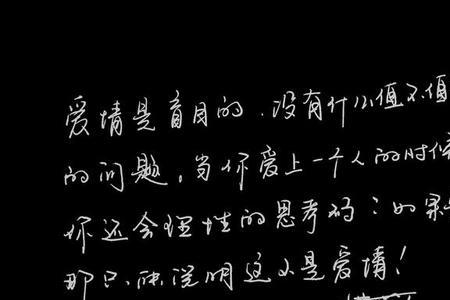 爱情是盲目的.没有什么值不值
的问题,当你爱上一个人的时候
你还会理性的思考码?如果
那只能说明这不是爱情!